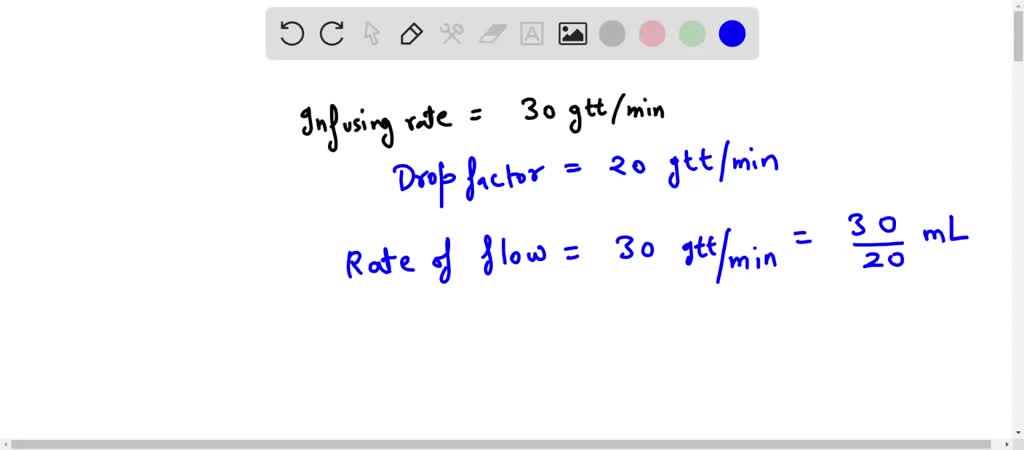 Infusing rate = 30 gtt/min
Drop factor = 20 gtt/min
Rate of flow = 30 gtt/min = 30/20 mL